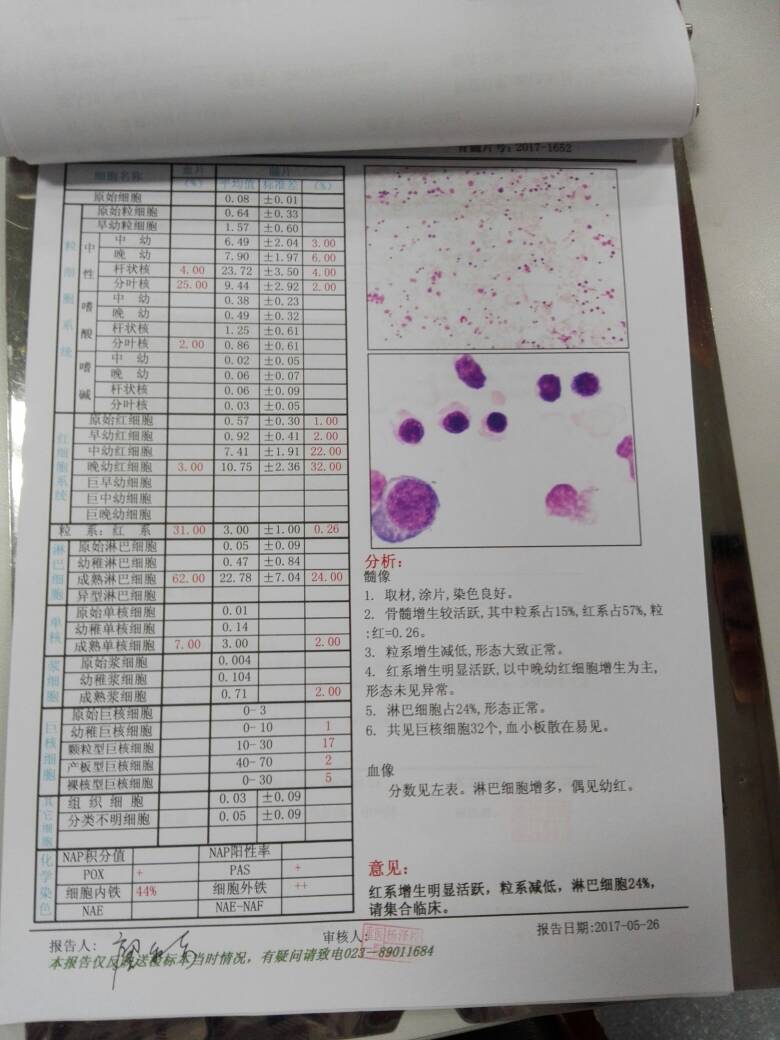 骨髓片号: 2017-1652
细胞名称 血片 髓片
(%) 平均值 标准差 (%)
原始细胞 0.08 ±0.01
粒细胞系统
原始粒细胞 0.64 ±0.33
早幼粒细胞 1.57 ±0.60
中性
中 幼 6.49 ±2.04 3.00
晚 幼 7.90 ±1.97 6.00
杆状核 4.00 23.72 ±3.50 4.00
分叶核 25.00 9.44 ±2.92 2.00
嗜酸
中 幼 0.38 ±0.23
晚 幼 0.49 ±0.32
杆状核 1.25 ±0.61
分叶核 2.00 0.86 ±0.61
嗜碱
中 幼 0.02 ±0.05
晚 幼 0.06 ±0.07
杆状核 0.06 ±0.09
分叶核 0.03 ±0.05
红细胞系统
原始红细胞 0.57 ±0.30 1.00
早幼红细胞 0.92 ±0.41 2.00
中幼红细胞 7.41 ±1.91 22.00
晚幼红细胞 3.00 10.75 ±2.36 32.00
巨早幼细胞
巨中幼细胞
巨晚幼细胞
粒 系: 红 系 31.00 3.00 ±1.00 0.26
淋巴细胞
原始淋巴细胞 0.05 ±0.09
幼稚淋巴细胞 0.47 ±0.84
成熟淋巴细胞 62.00 22.78 ±7.04 24.00
异型淋巴细胞
单核
原始单核细胞 0.01
幼稚单核细胞 0.14
成熟单核细胞 7.00 3.00 2.00
浆细胞
原始浆细胞 0.004
幼稚浆细胞 0.104
成熟浆细胞 0.71 2.00
巨核细胞
原始巨核细胞 0-3
幼稚巨核细胞 0-10 1
颗粒型巨核细胞 10-30 17
产板型巨核细胞 40-70 2
裸核型巨核细胞 0-30 5
其它细胞
组 织 细 胞 0.03 ±0.09
分类不明细胞 0.05 ±0.09
化学染色
NAP积分值 NAP阳性率
POX + PAS +
细胞内铁 44% 细胞外铁 ++
NAE NAE-NAF
分析:
髓像
1. 取材,涂片,染色良好。
2. 骨髓增生较活跃,其中粒系占15%,红系占57%,粒
:红=0.26。
3. 粒系增生减低,形态大致正常。
4. 红系增生明显活跃,以中晚幼红细胞增生为主,
形态未见异常。
5. 淋巴细胞占24%,形态正常。
6. 共见巨核细胞32个,血小板散在易见。
血像
分数见左表。淋巴细胞增多, 偶见幼红。
意见:
红系增生明显活跃, 粒系减低, 淋巴细胞24%,
请集合临床。
报告人: 审核人: 报告日期:2017-05-26
本报告仅反 送检标本当时情况, 有疑问请致电023—89011684